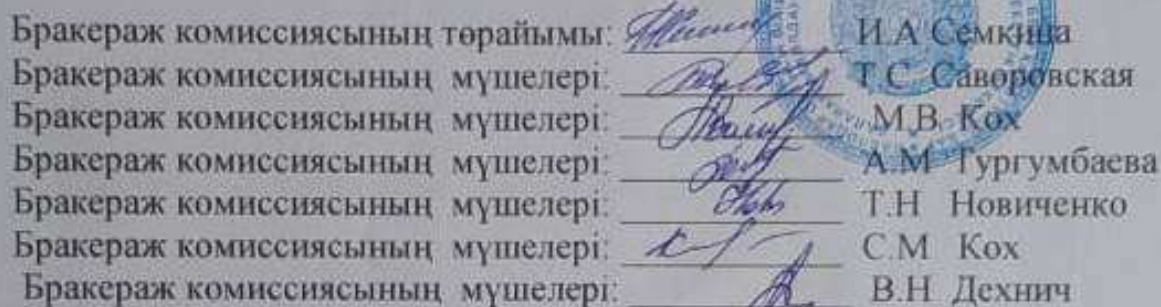 Бракераж комиссиясының төрайымы: И.А Семкина
Бракераж комиссиясының мүшелері: Т.С Саворовская
Бракераж комиссиясының мүшелері: М.В. Кох
Бракераж комиссиясының мүшелері: А.М Тургумбаева
Бракераж комиссиясының мүшелері: Т.Н Новиченко
Бракераж комиссиясының мүшелері: С.М Кох
Бракераж комиссиясының мүшелері: В.Н Дехнич